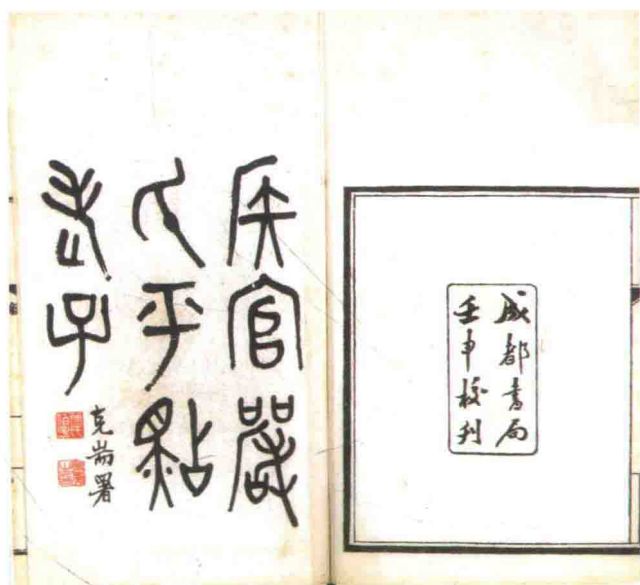 成都書局
壬申校刊
侯官嚴
氏平點
老子
克耑署